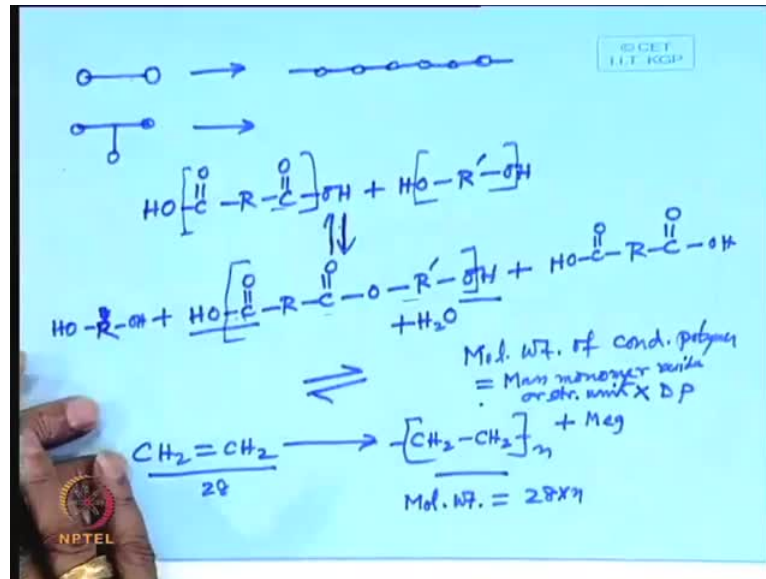 © CET
I.I.T KGP
O O
HO[C-R-C]OH + HO-R′-OH
O O O O
HO-R-OH + HO[C-R-C-O-R′-O]H + HO-C-R-C-OH
+H₂O
Mol. Wt. of cond. polymer
= Mass monomer
or str. unit X DP
+ Meg
CH₂=CH₂ → -[CH₂-CH₂]n
28
Mol. Wt. = 28×n
NPTEL